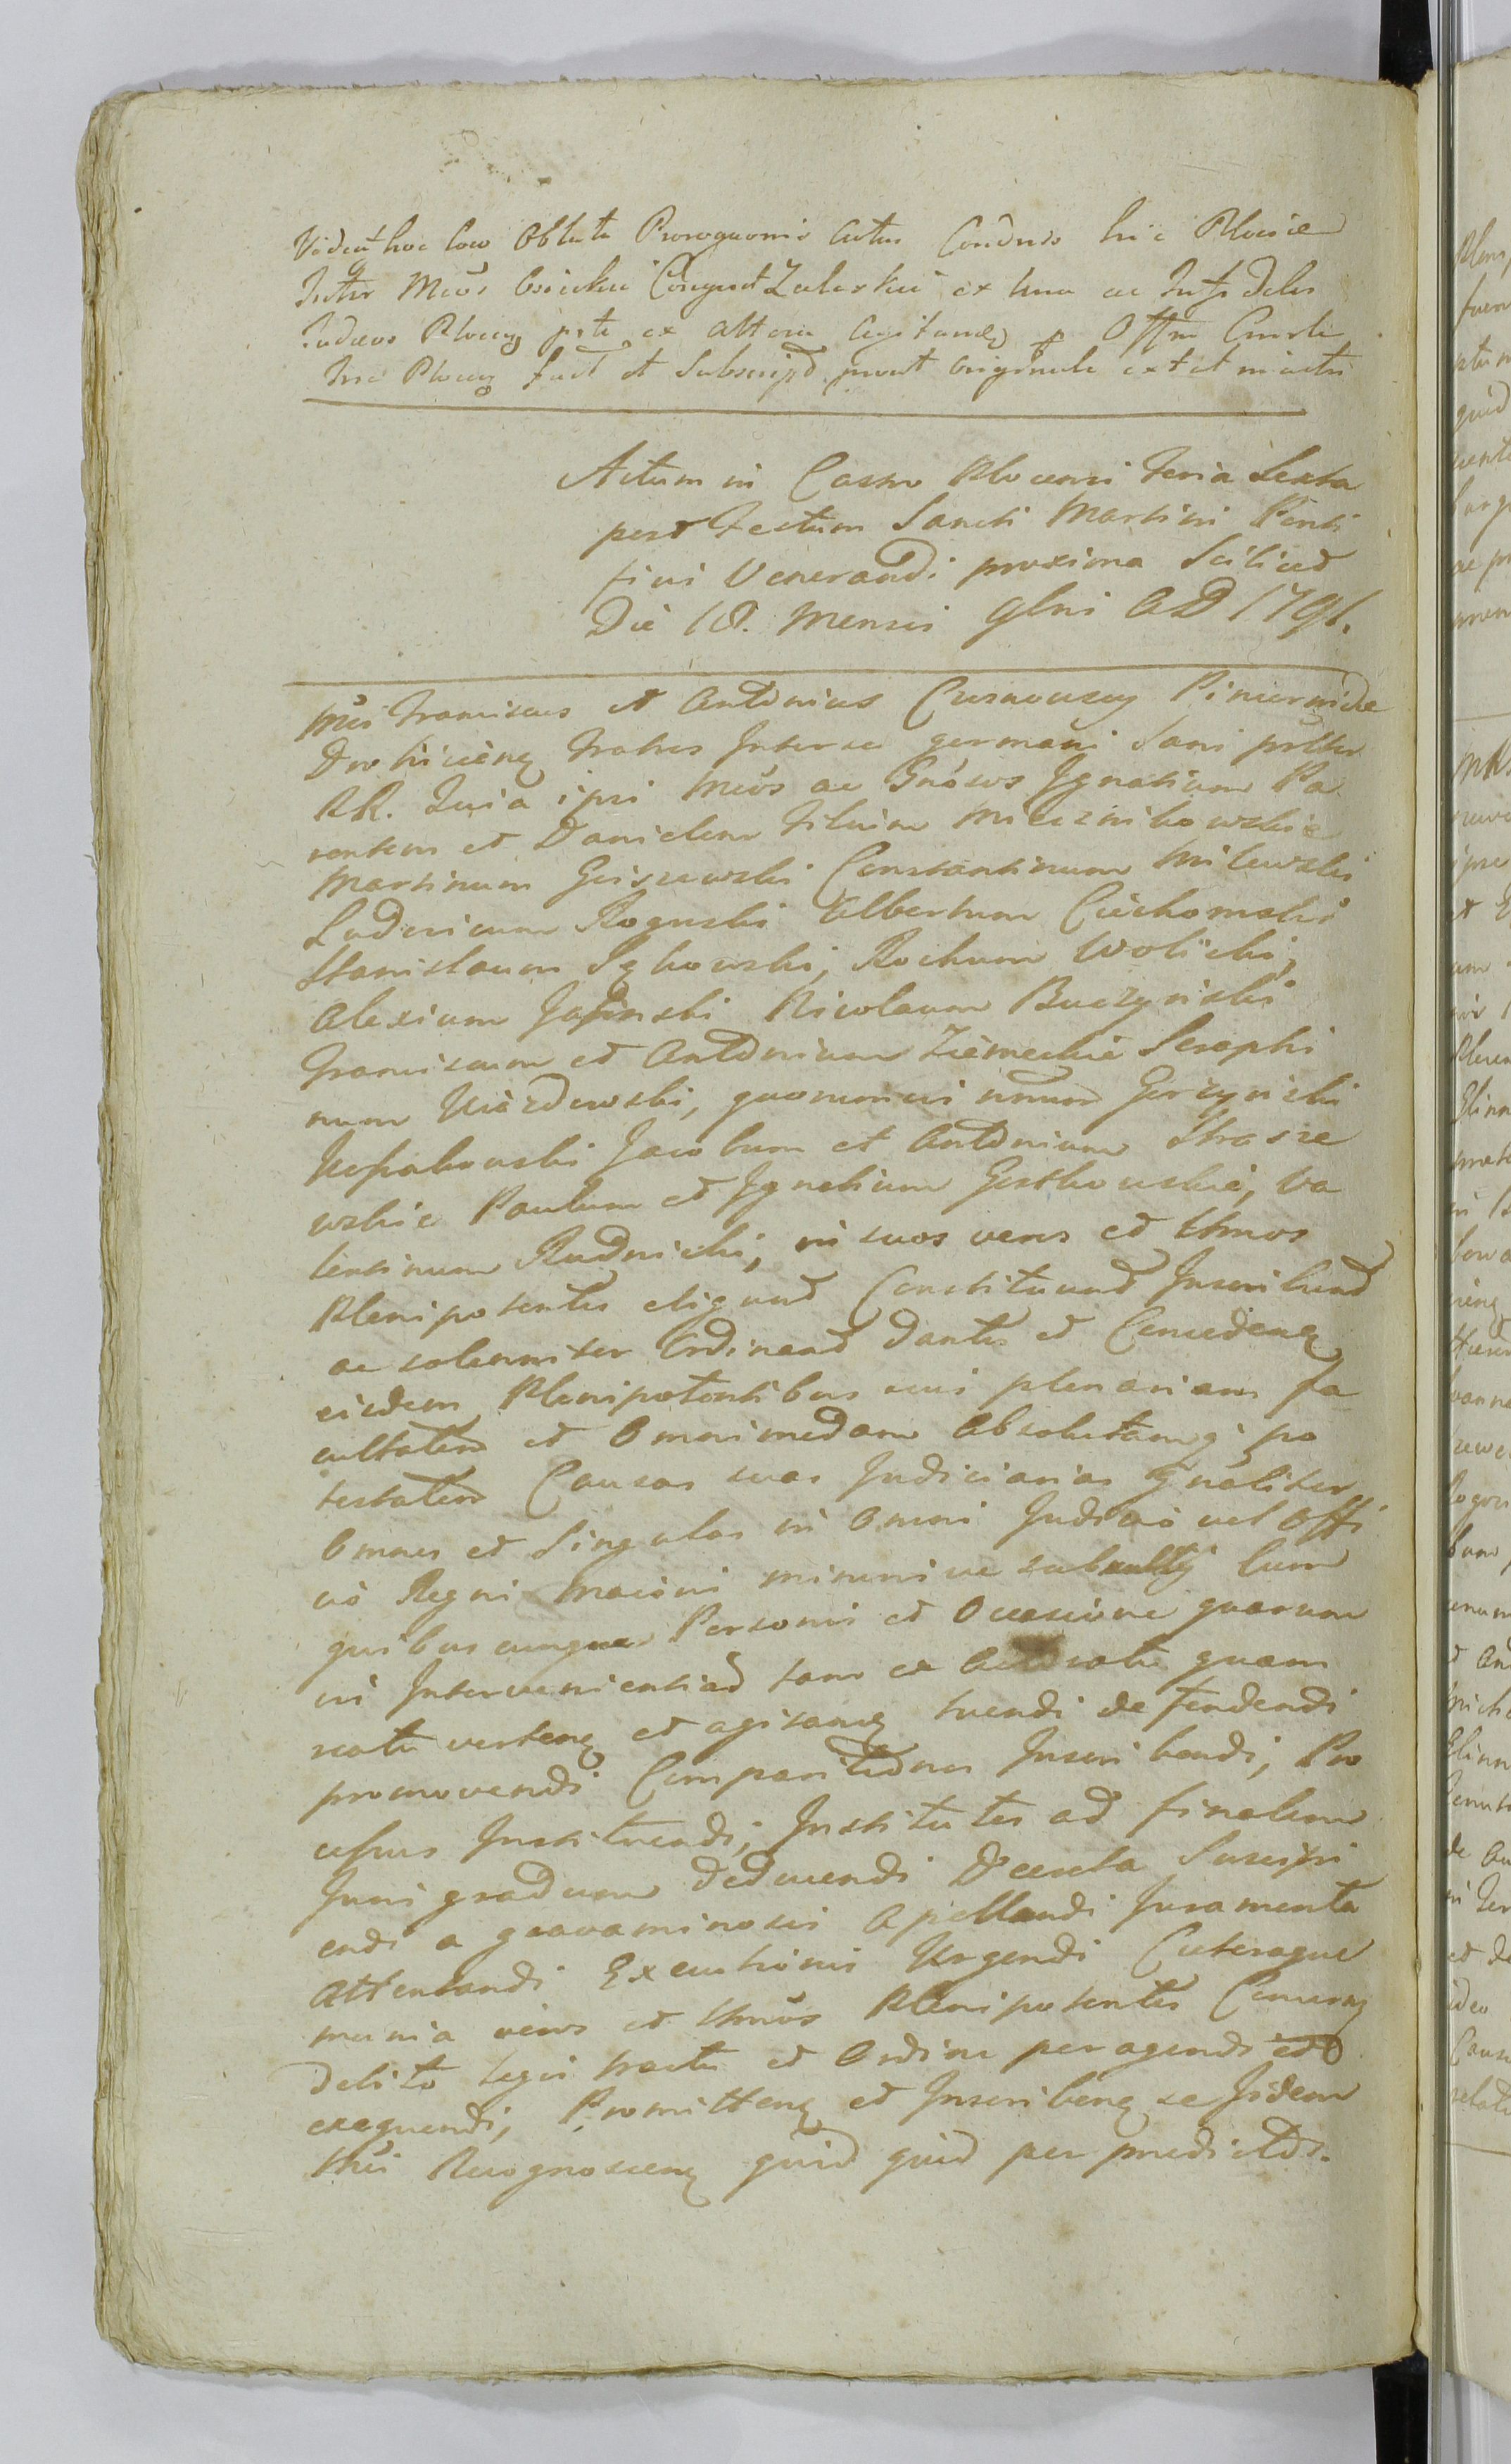 Videat hoc loco Oblata Prorogaonis actus Condesc hic Plociae
Inter Mcos Osieckie Conjuges Zaleskie ex una ac Infideles
Judaeos Plocen pte ex altera agitan p Offm Castr
hic Plocen fact et Subscript prout originale extat in actis
Actum in Castro Plocensi Feria Sexta
post Festum Sancti Martini Ponti
ficis Venerandi proxima Scilicet
Die 18. Mensis 9bris AD 1791.
Mci Franciscus et Antonius Czarnowscy Pincernidae
Drohicien Fratres Inter se germani Sani
RR. Quia ipsi Mcos ac Gnosos Ignatium Pa
rentem et Danielem Filium Miecznikowskie
Martinum Goiszewski Constantinum Milewski
Ludovicum Roguski Albertum Ciechomski
Stanislaum Sękowski, Rochum Wolicki,
Alexium Jasinski Nicolaum Buczynski
Franciscum et Antonium Ziemeckie Seraphi
num Uiazdowski, quoncunvis nomine Gorzynski
Ussakowski Jacobum et Antonium Strasze
wskie Paulum et Ignatium Gostkowskie, Va
lentinum Rudnicki, in suos veros et Ltmos
Plenipotentes eligunt Constituunt Inscribunt
ac solenniter Ordinant Dantes et Conceden
eisdem Plenipotentibus suis plenariam fa
cultatem et Omnimodam Absolutamq po
testatem Causas suas Judiciarias Gnaliter
Omnes et Singulas in Omni Judicio vel Offi
cio Regni Maioris minorisve subsellij Cum
quibuscunque Personis et Occasione quarum
vis Intervenientiad tam ex Actoratu quam
reatu verten et agitan tuendi defendendi
promovendi Comparitiones Inscribendi, Pro
cessus Instituendi, Institutos ad finalem
Juris gradum deducendi Decreta Suscipi
endi a gravaminosis Apellandi Juramenta
Attentandi Executionis Urgendi Caeteraque
munia veros et Ltmos Plenipotentes Concern
debito legis tractu et Ordine peragendi et
exequendi, Promitten et Inscriben se Iidem
Recognoscen quid quid per praedictos.